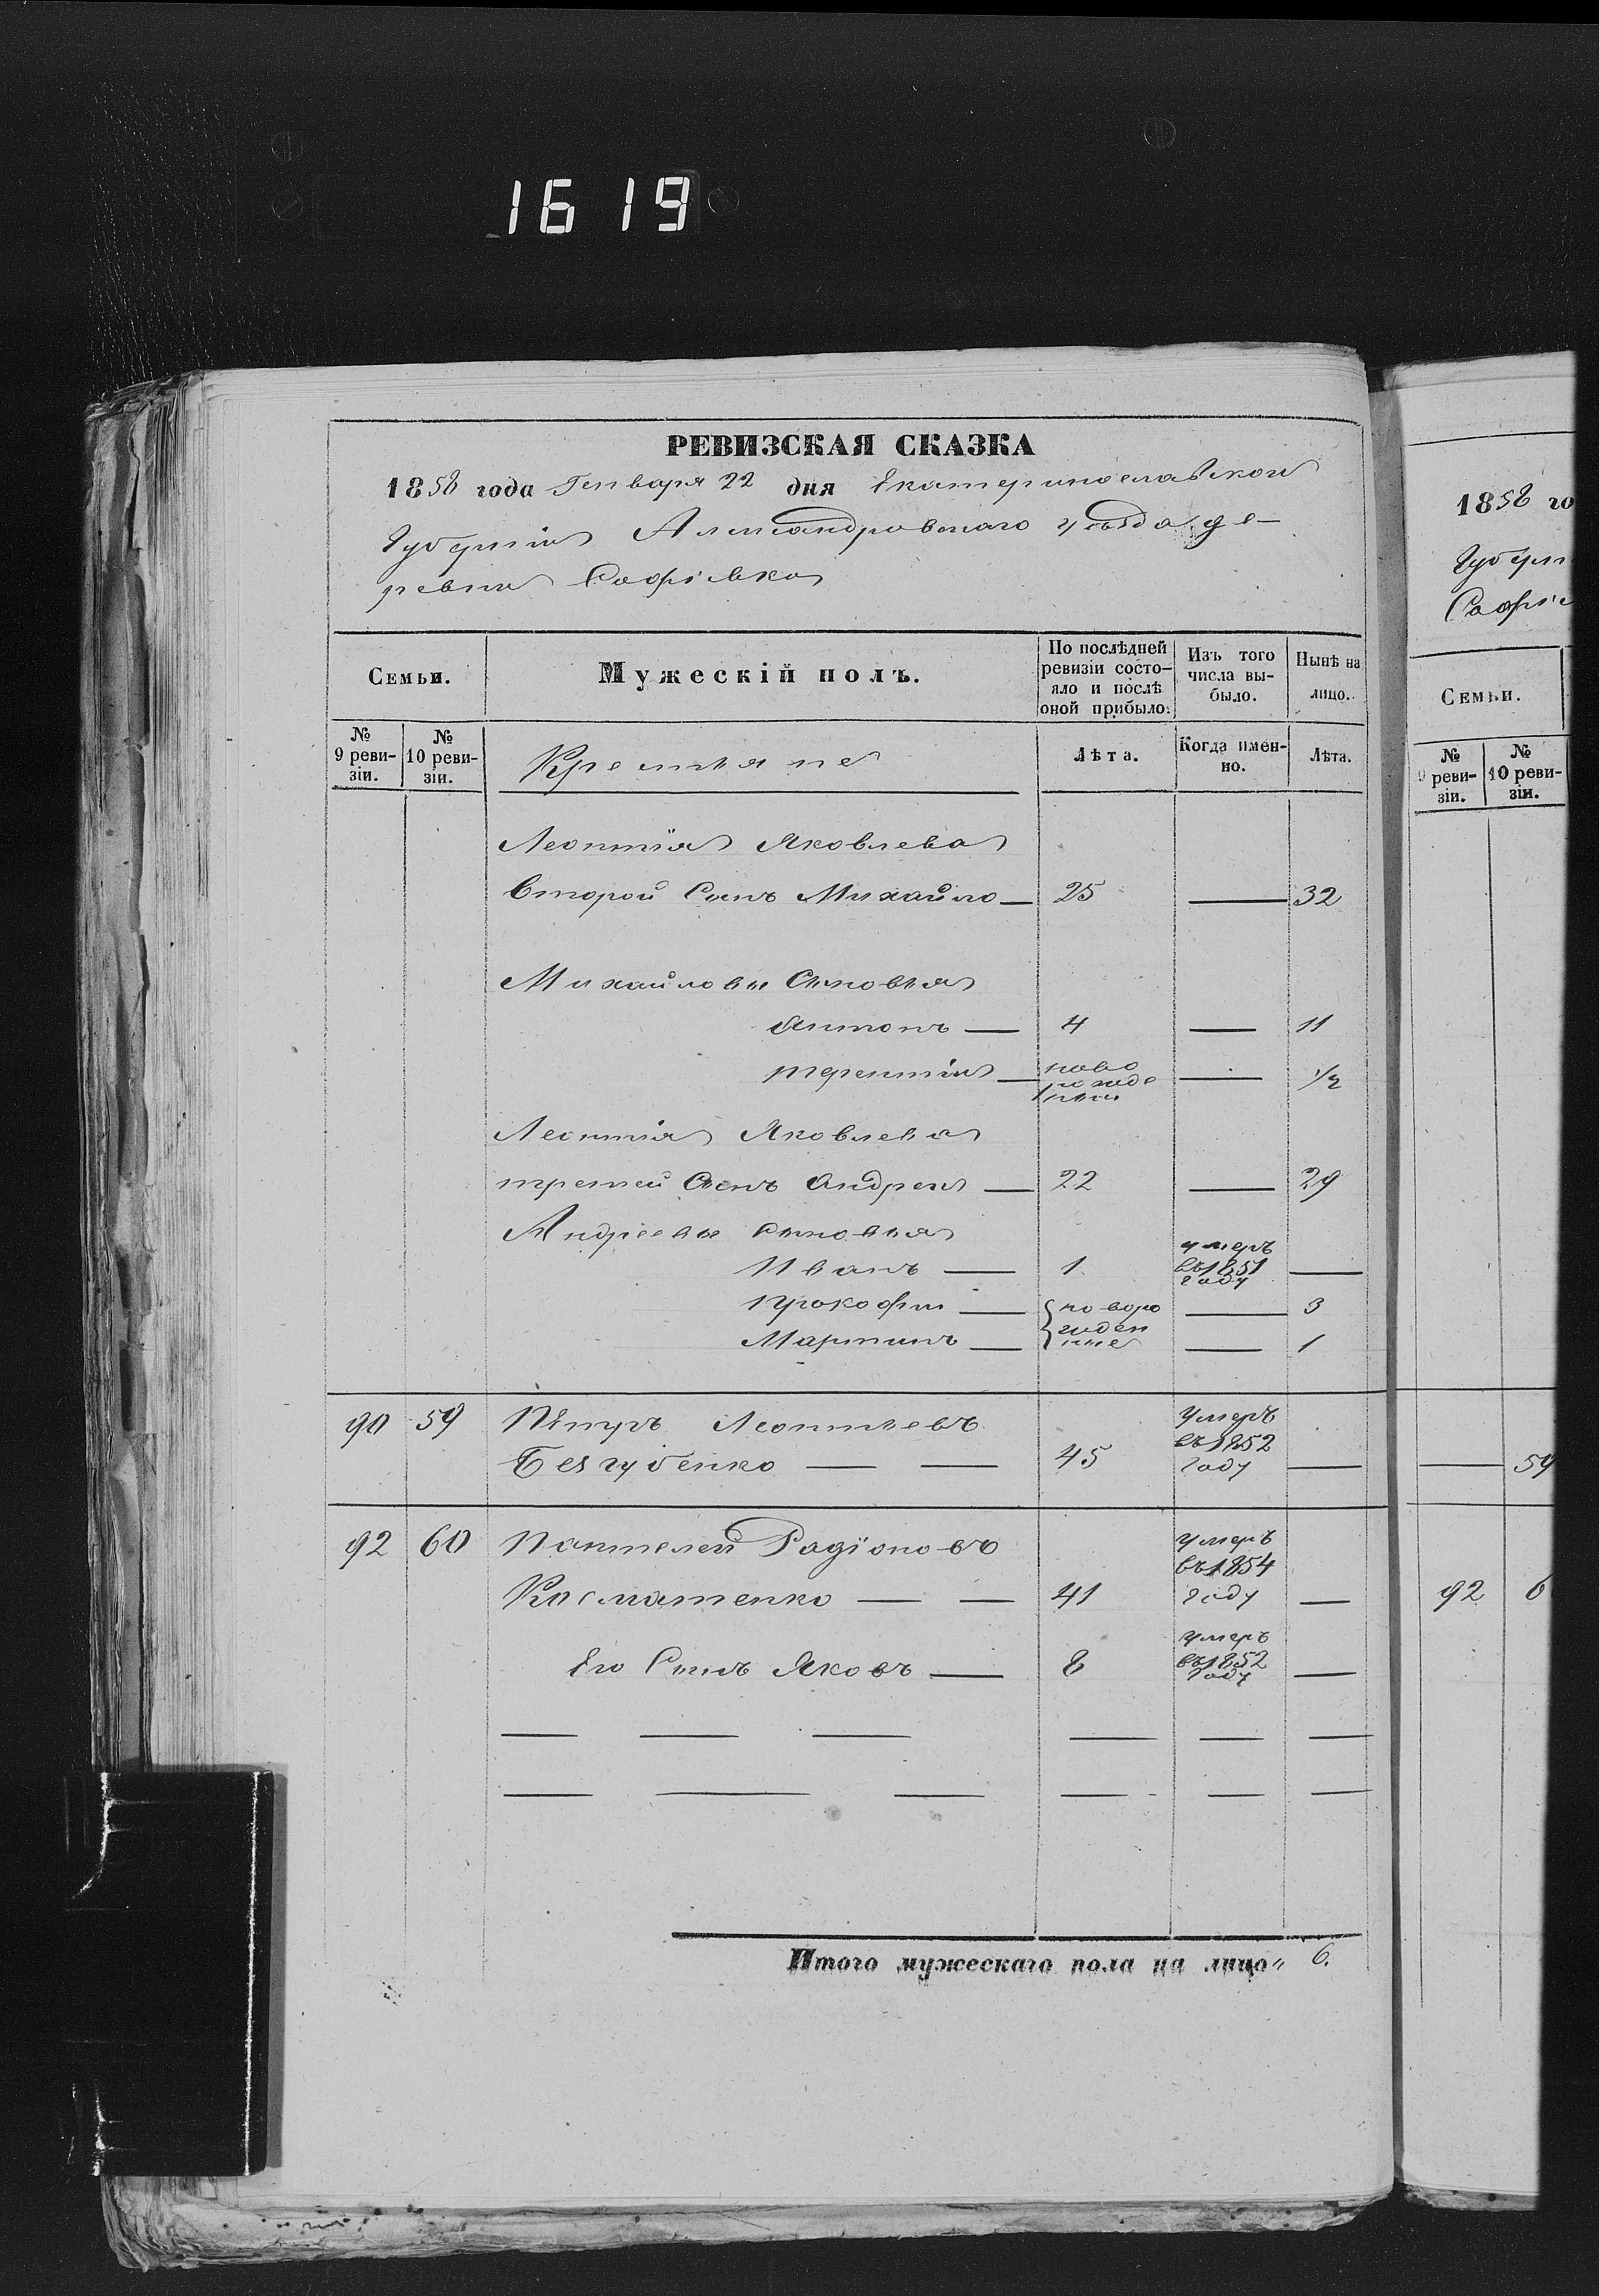 1619
РЕВИЗСКАЯ СКАЗКА
1858 года Генваря 22 дня Екатеринославской
Губерніи Александровскаго уѣзда де-
ревни Софіевки
Семьи.
Мужескій полъ.
По послѣдней
ревизіи состо-
яло и послѣ
оной прибыло.
Изъ того
числа вы-
было.
Нынѣ на
лицо.
№
9 реви-
зіи.
№
10 реви-
зіи.
Крестьяне
Лѣта.
Когда имен-
но.
Лѣта.
Леонтія Яковлева
Второй Сынъ Михайло — 25 — 32
Михайловы Сыновья
Антонъ — 4 — 11
терентій — ново
рожде
нный — 1/2
Леонтія Яковлева
третей Сынъ Андрей — 22 — 29
Андреевы Сыновья
Иванъ — 1 умеръ
въ 1851
году —
Прокофий — новоро — 3
жден
Мартинъ — ные — 1
90 59 Пётръ Леонтьевъ
Безгубенко — — 45 умеръ
въ 1852
году —
92 60 Пантелей Радіоновъ
Косматенко — — 41 умеръ
въ 1854
году —
Его Сынъ Яковъ — 8 умеръ
въ 1852
году —
Итого мужескаго пола на лицо „ 6.
1858 го
Губерн
Софіе
Семьи.
№
9 реви-
зіи.
№
10 реви-
зіи.
— 59
92 6